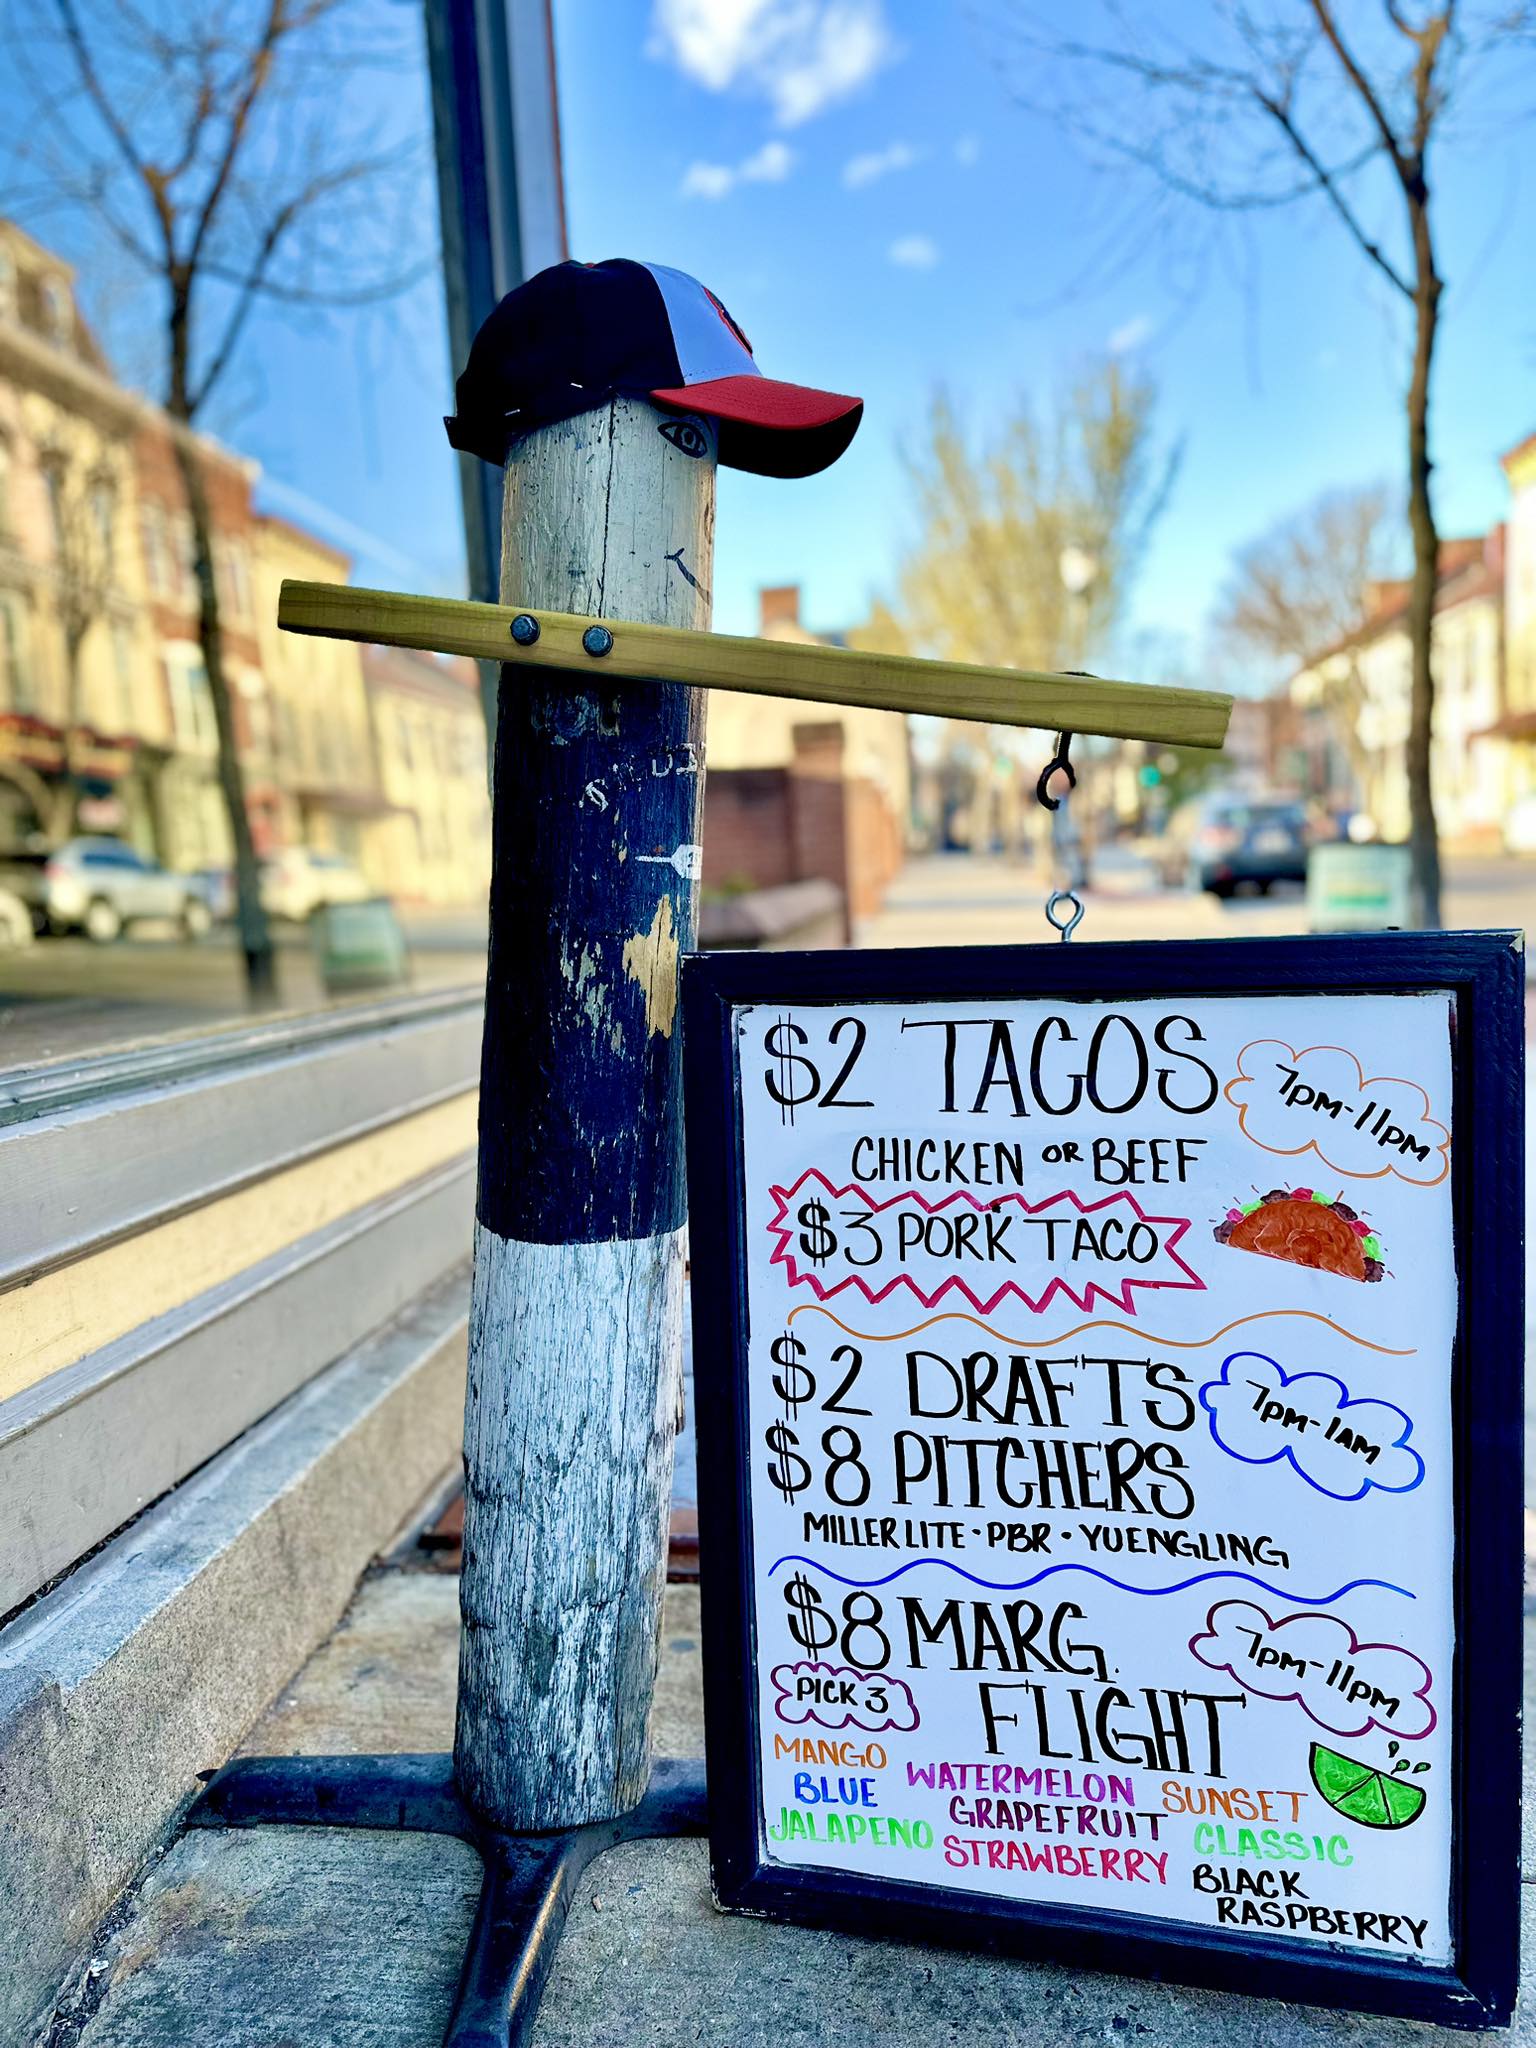 $2 TACOS
7PM-11PM
CHICKEN OR BEEF
$3 PORK TACO
$2 DRAFTS
7PM-1AM
$8 PITCHERS
MILLER LITE • PBR • YUENGLING
$8 MARG.
7PM-11PM
PICK 3
FLIGHT
MANGO
BLUE
JALAPENO
WATERMELON
GRAPEFRUIT
STRAWBERRY
SUNSET
CLASSIC
BLACK
RASPBERRY